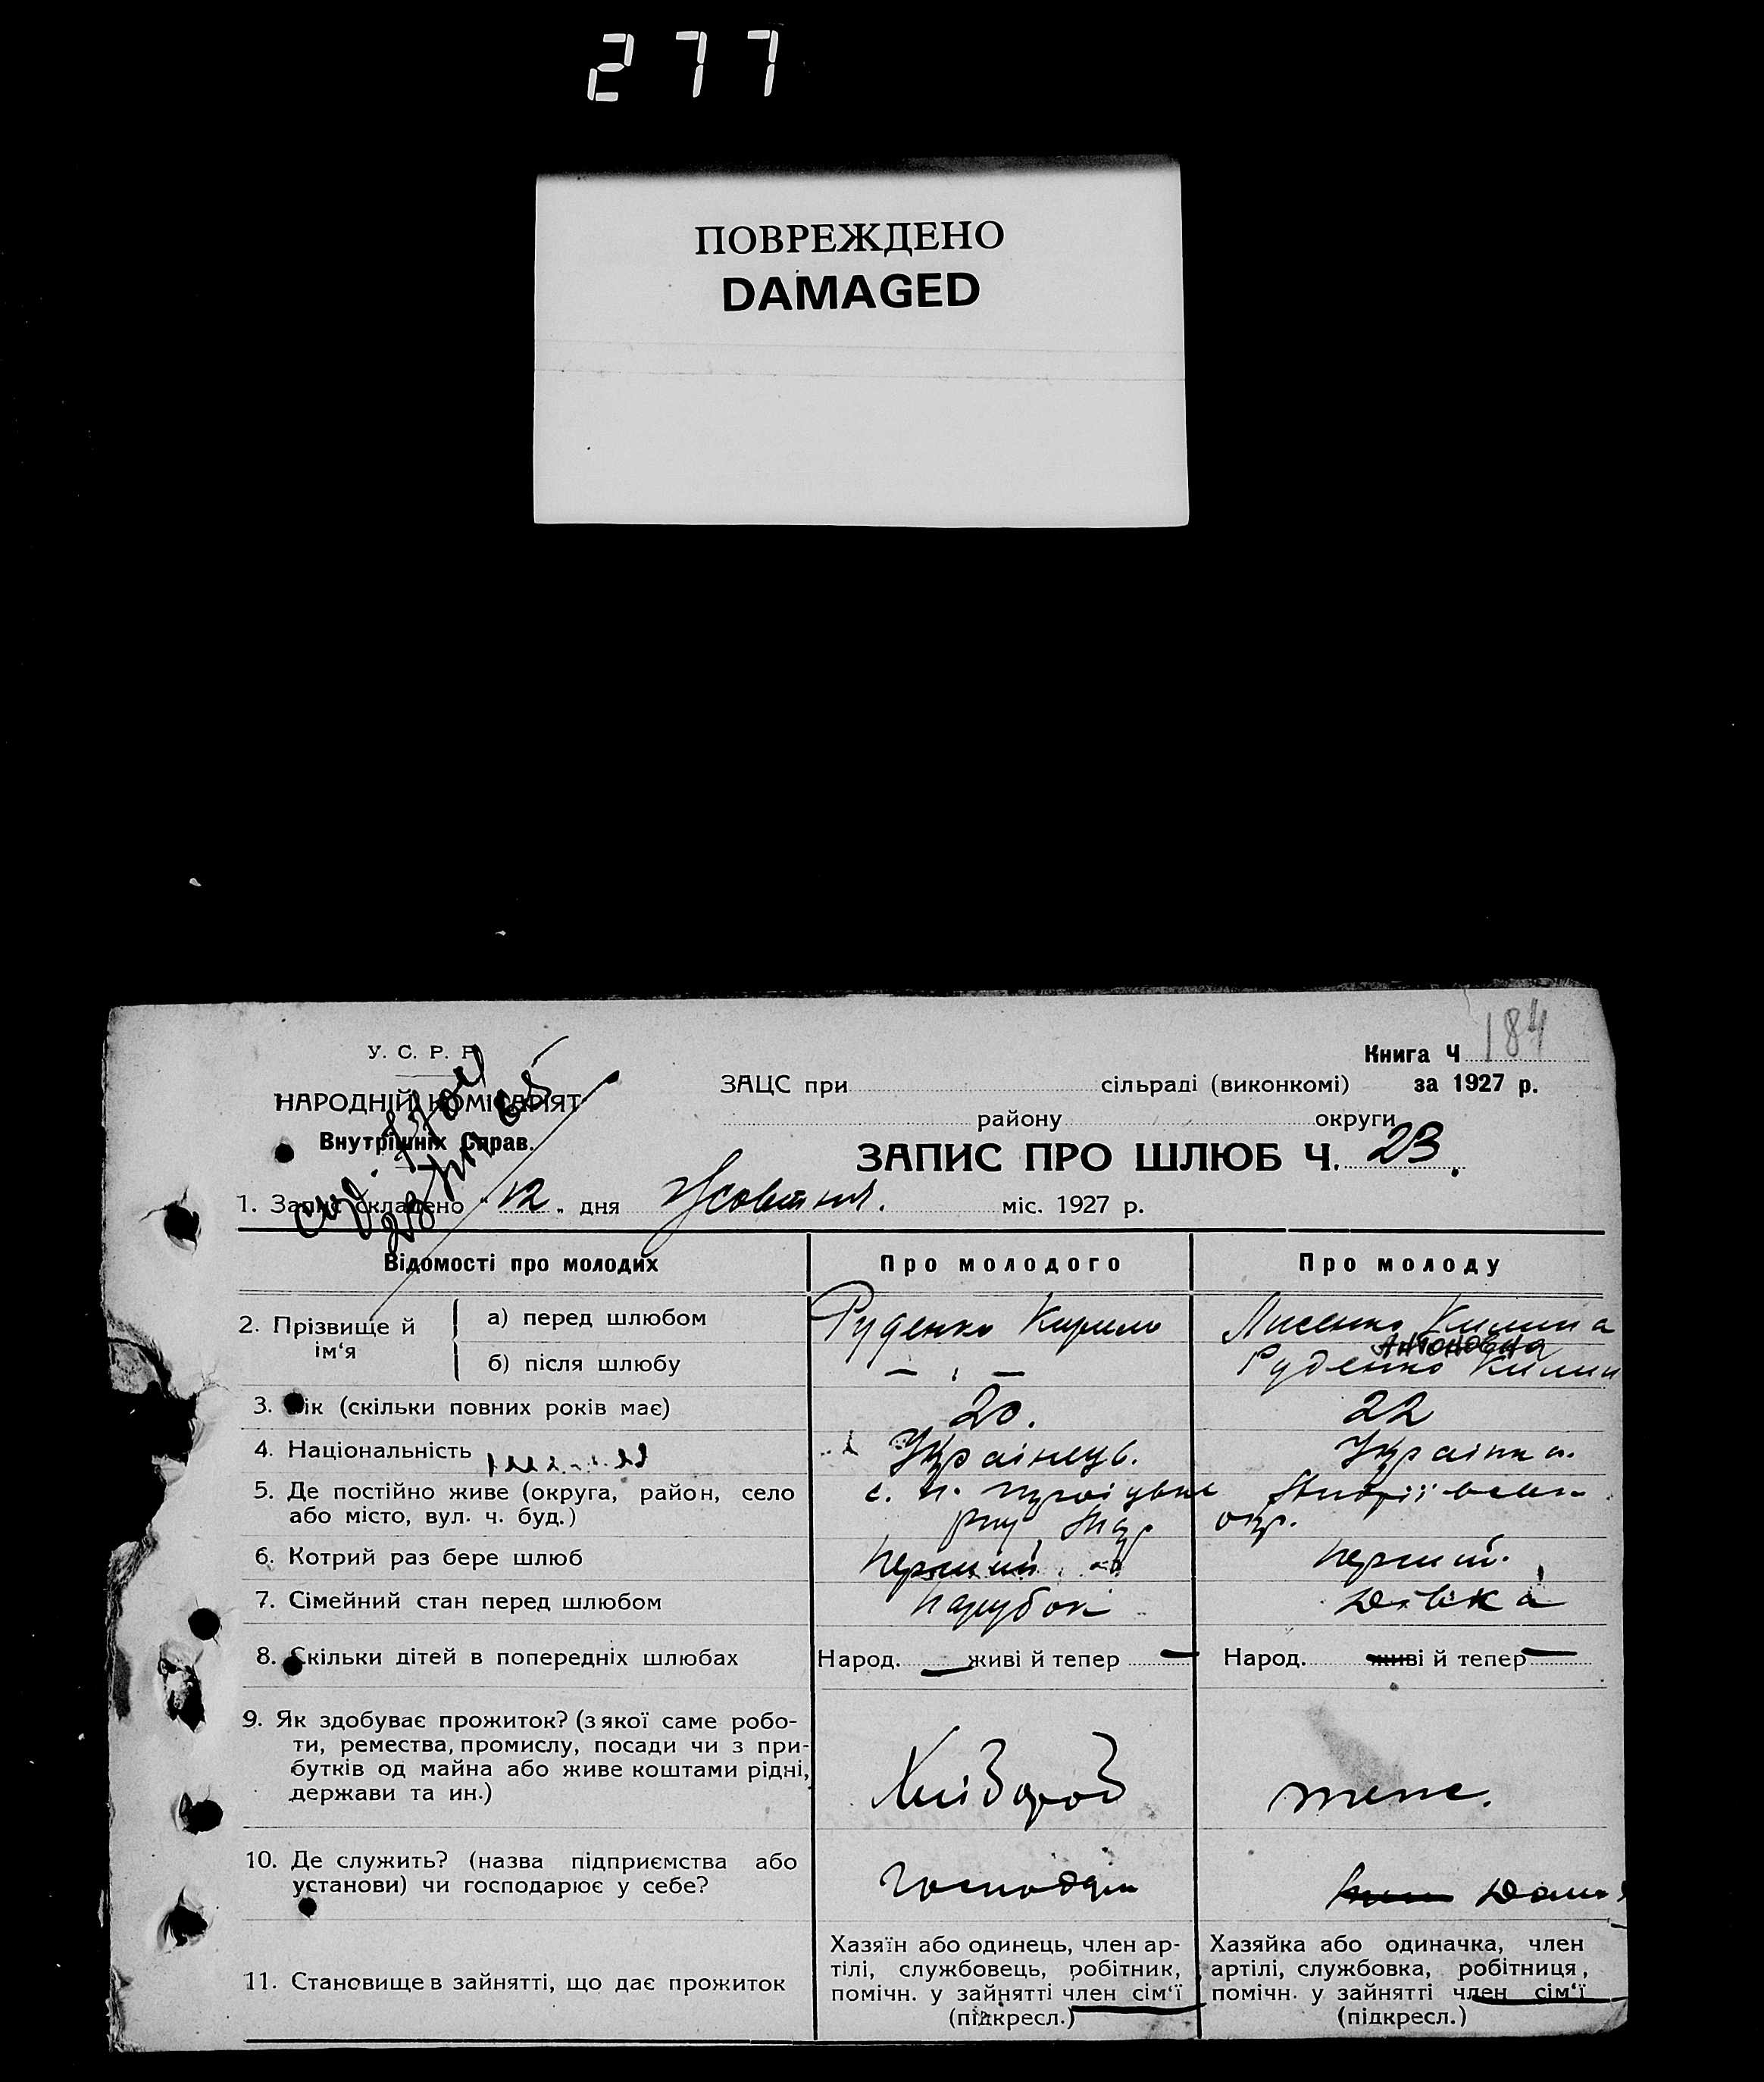 277
ПОВРЕЖДЕНО
DAMAGED
184
У. С. Р. Р.
Книга Ч
НАРОДНІЙ КОМІСАРІЯТ
ЗАЦС при сільраді (виконкомі) за 1927 р.
Внутрішніх Справ.
району округи
ЗАПИС ПРО ШЛЮБ Ч. 23.
1. Запис складено "12" дня Жовтня. міс. 1927 р.
Відомості про молодих Про молодого Про молоду
2. Прізвище й ім'я а) перед шлюбом Руденко Кирило Лисенко Килина
Антоновна
б) після шлюбу — „ — Руденко Килин
3. Вік (скільки повних років має) 20. 22
4. Національність Українець. Українка.
5. Де постійно живе (округа, район, село
або місто, вул. ч. буд.) окр.
6. Котрий раз бере шлюб Перший Перший.
7. Сімейний стан перед шлюбом Парубок Дівка
8. Скільки дітей в попередніх шлюбах Народ. — живі й тепер — Народ. живі й тепер —
9. Як здобуває прожиток? (з якої саме робо-
ти, ремества, промислу, посади чи з при-
бутків од майна або живе коштами рідні,
держави та ин.) Хлібороб теж.
10. Де служить? (назва підприємства або
установи) чи господарює у себе?
11. Становище в зайнятті, що дає прожиток
Хазяїн або одинець, член ар-
тілі, службовець, робітник,
помічн. у зайнятті член сім'ї
(підкресл.)
Хазяйка або одиначка, член
артілі, службовка, робітниця,
помічн. у зайнятті член сім'ї
(підкресл.)